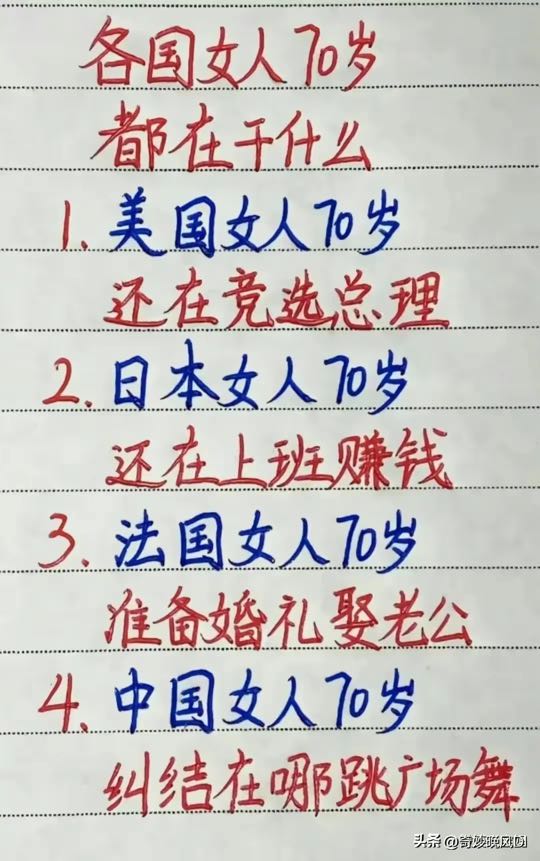 各国女人70岁
都在干什么
1. 美国女人70岁
还在竞选总理
2. 日本女人70岁
还在上班赚钱
3. 法国女人70岁
准备婚礼娶老公
4. 中国女人70岁
纠结在哪跳广场舞
头条 @奇妙晚风